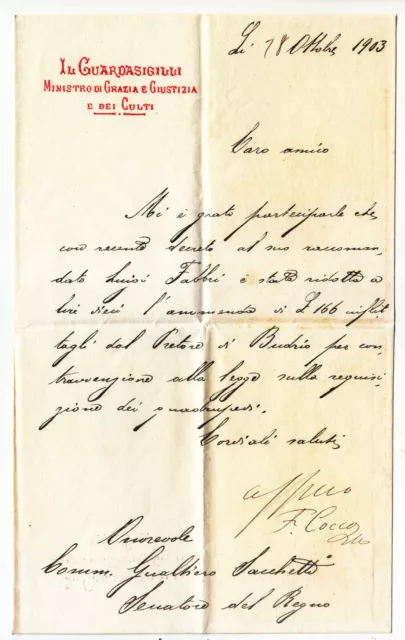 Li 18 Ottobre 1903
IL GUARDASIGILLI
MINISTRO DI GRAZIA E GIUSTIZIA
E DEI CULTI
Caro amico
Mi è grato parteciparle che,
con recente decreto al suo raccoman
dato Luigi Fabbri è stata ridotta a
lire dieci l'ammenda di £ 166 inflit
tagli dal Pretore di Budrio per con
travvenzione alla legge sulla requisi
zione dei quadrupedi.
Cordiali saluti,
affmo
F. Cocco
Onorevole
Comm. Gualtiero Sacchetti
Senatore del Regno